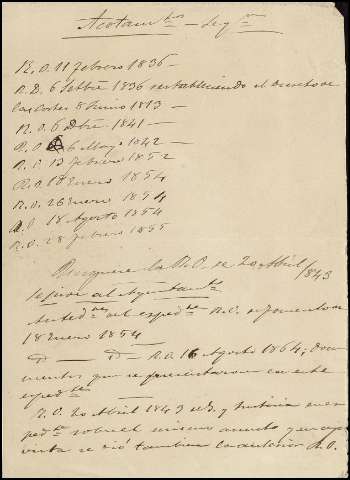 Acotam.tos — Leg.on
R.O. 11 febrero 1836 —
R.D. 6 Setbre 1836 restableciendo el Decreto de
las Cortes 8 Junio 1813 —
R.O. 6 Dbre 1841 —
R.O. 6 Mayo 1842 —
R.O. 13 febrero 1852
R.O. 18 Enero 1854
R.O. 26 Enero 1854
R.O. 18 Agosto 1854
R.O. 28 febrero 1855
la R.O. de 20 Abril/843
al Ayuntam.to
Anteced.tes del esped.te R.O. de fomento de
18 Enero 1854
D — D — R.O. 16 Agosto 1864; Docu-
mentos que se presentaron en este
esped.te
R.O. 20 Abril 1843 y historia en es-
ped.te sobre el mismo asunto y en cuya
vista se dió tambien la anterior R.O.